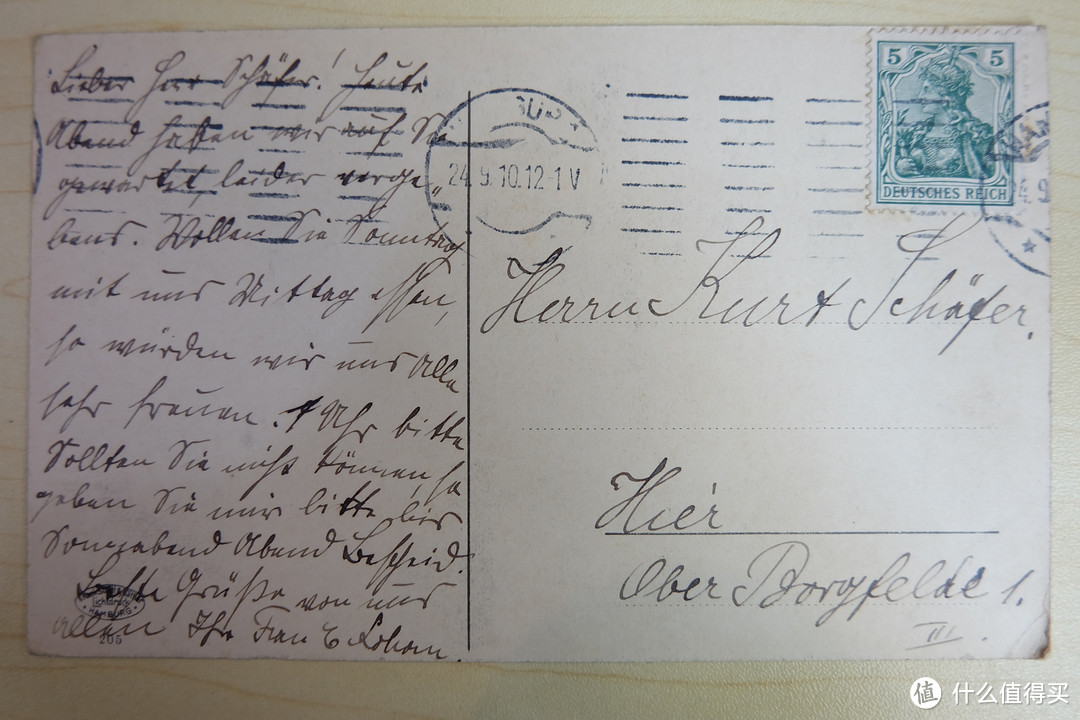 Lieber Herr Schäfer! Heute
Abend haben wir auf Sie
gewartet, leider verge„
bens. Wollen Sie Sonntag
mit uns Mittag essen,
so würden wir uns alle
sehr freuen. 1 Uhr bitte
Sollten Sie nicht können, so
geben Sie mir bitte bis
Sonnabend Abend Bescheid.
Beste Grüße von uns
allen Ihre Frau E
HAMBURG
205
24.9.10.12-1V
5 5
DEUTSCHES REICH
Herrn Kurt Schäfer.
Hier
Ober Borgfelde 1.
III.
值 什么值得买